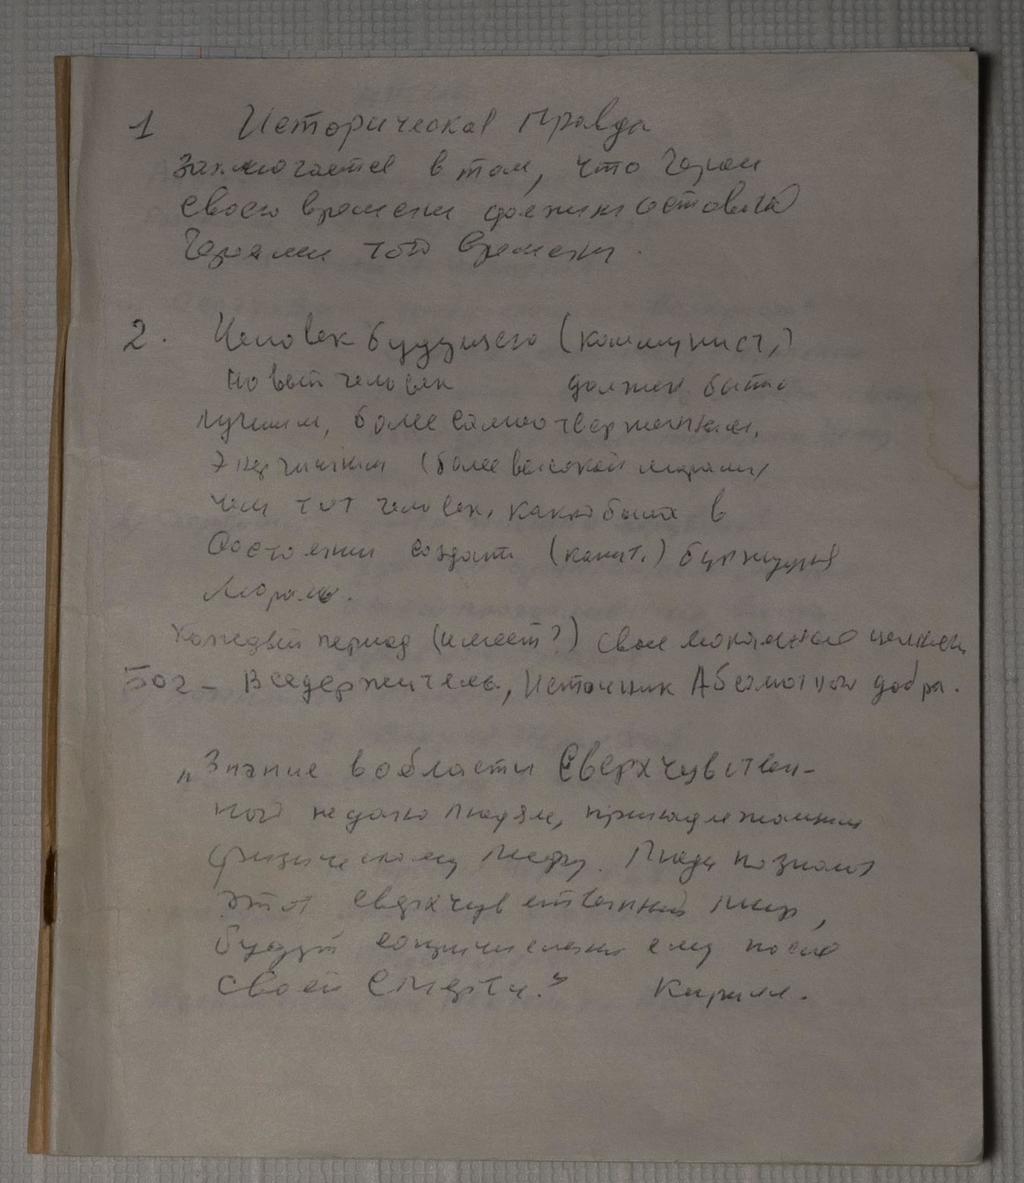 1 Историческая правда
заключается в том, что Герои
своего времени должны оставаться
Героями того времени.
2. Человек будущего (коммунист,)
новый человек должен быть
лучшим, более самоотверженным,
энергичным (более высокой морали)
чем тот человек, какой был в
состоянии создать (капит.) буржуазная
мораль.
Каждый период (имеет?) свои моральные
Бог – Вседержитель, Источник Абсолютного добра.
„Знание в области Сверхчувствен-
ной не дано людям, принадлежащим
физическому миру. Люди познают
этот сверхчувственный мир,
будут сопричислены ему после
своей смерти.” Кирилл.